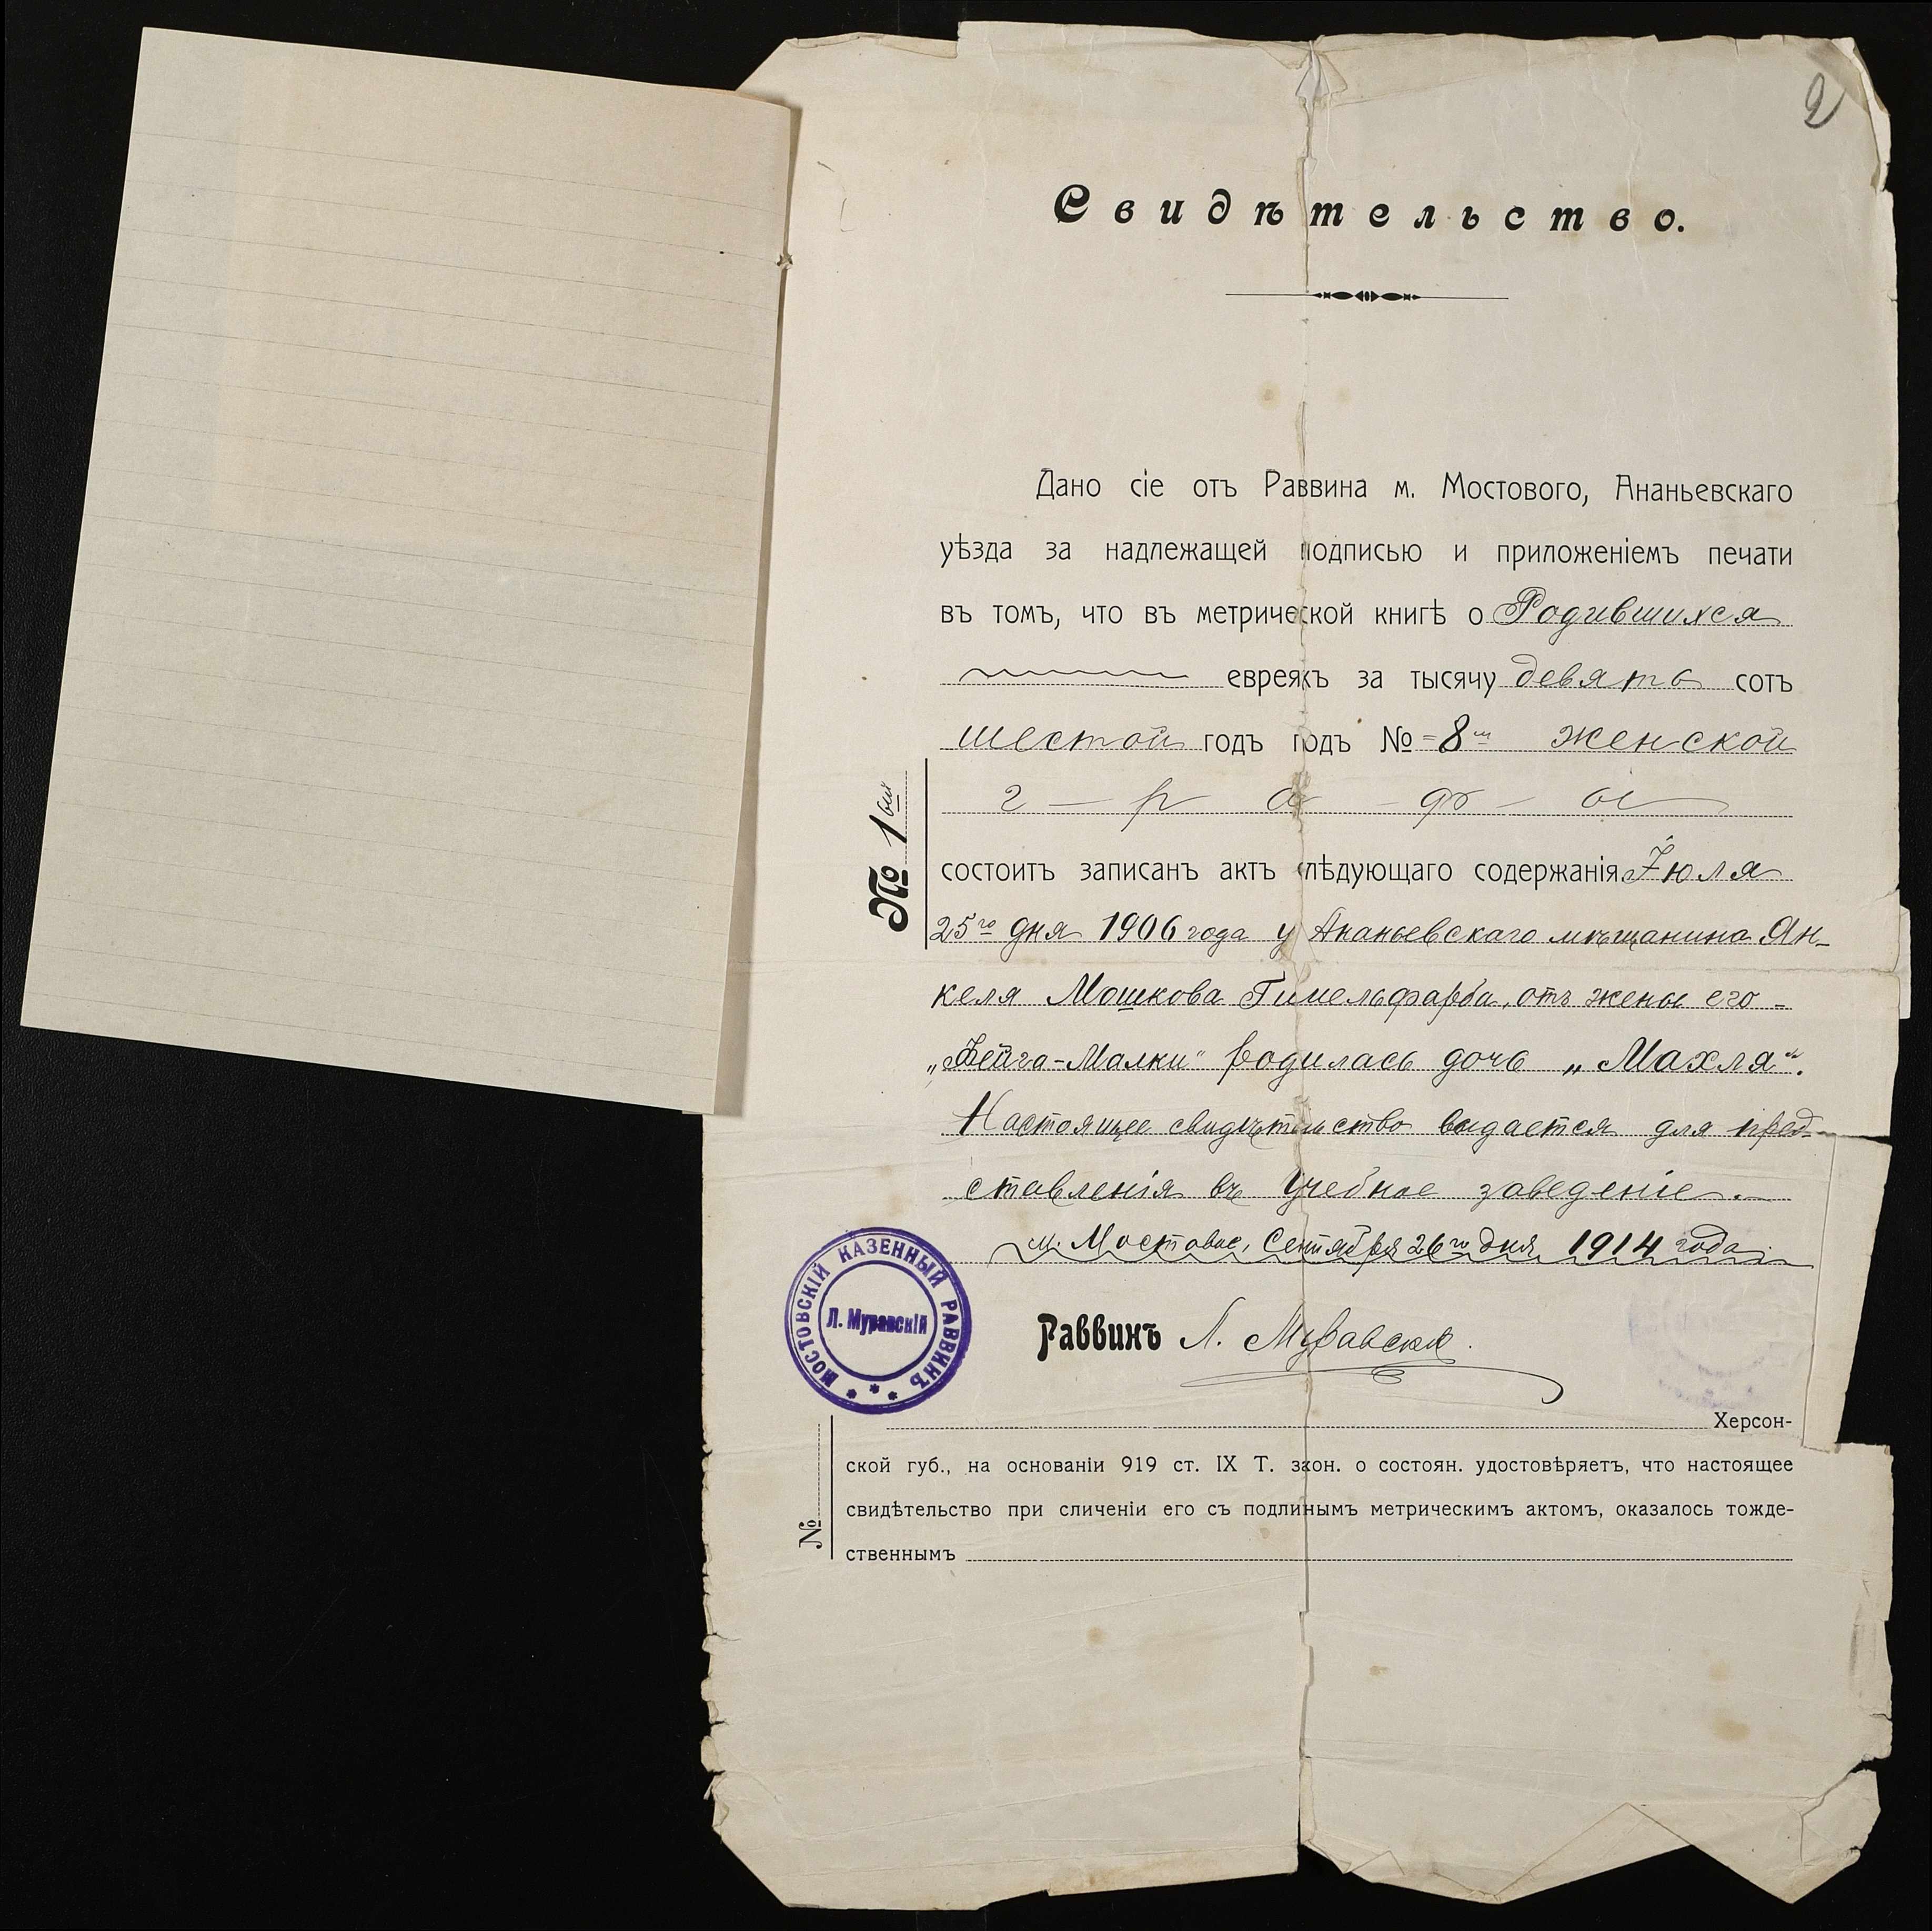 2
Свидѣтельство.
Дано сіе отъ Раввина м. Мостового, Ананьевскаго
уѣзда за надлежащей подписью и приложеніемъ печати
въ томъ, что въ метрической книгѣ о Родившихся
евреяхъ за тысячу девять сотъ
шестой годъ годъ № 8й женской
г - р а - ф - ы
№ 1вый
состоитъ записанъ актъ слѣдующаго содержанія Іюля
25го дня 1906 года у Ананьевскаго мѣщанина Ян-
келя Мошкова Гимельфарба, отъ жены его -
„Фейга-Малки" родилась дочь „Махля".
Настоящее свидѣтельство выдается для пред-
ставленія въ учебное заведеніе.
м. Мостовое, Сентября 26го дня 1914 года.
МОСТОВСКІЙ КАЗЕННЫЙ РАВВИНЪ
Л. Муравскій
Раввинъ Л. Муравскій.
Херсон-
ской губ., на основаніи 919 ст. IX Т. закон. о состоян. удостовѣряетъ, что настоящее
свидѣтельство при сличеніи его съ подлинымъ метрическимъ актомъ, оказалось тожде-
ственнымъ
№